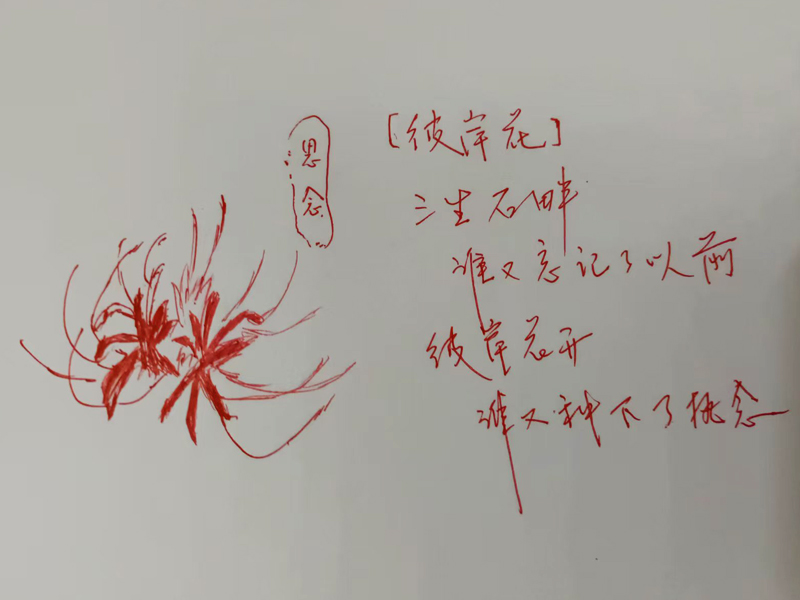 思念
[彼岸花]
三生石畔
谁又忘记了以前
彼岸花开
谁又种下了执念